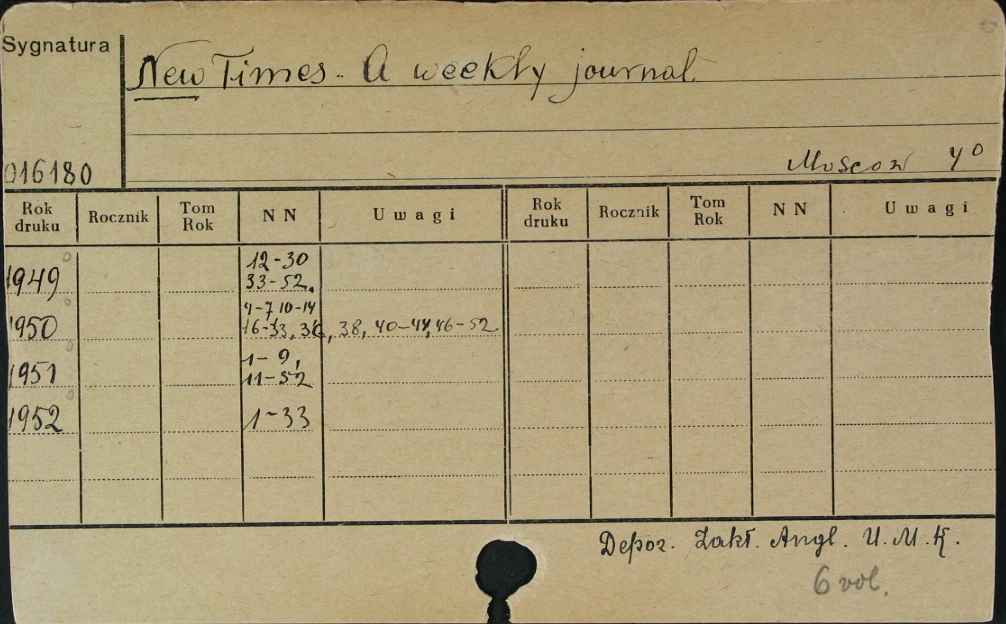 Sygnatura
New Times - A weekly journal.
016180
Moscow 4°
Rok druku Rocznik Tom Rok NN Uwagi Rok druku Rocznik Tom Rok NN Uwagi
1949 12-30
33-52.
1950 4-7 10-14
16-33, 36, 38, 40-44, 46-52
1951 1-9,
11-52
1952 1-33
Depoz. Zakł. Angl. U.M.K.
6 vol.